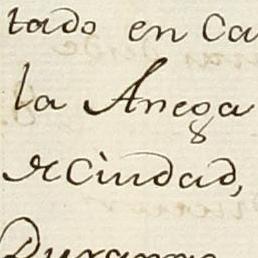 tado en Ca
la Anega
Ciudad,